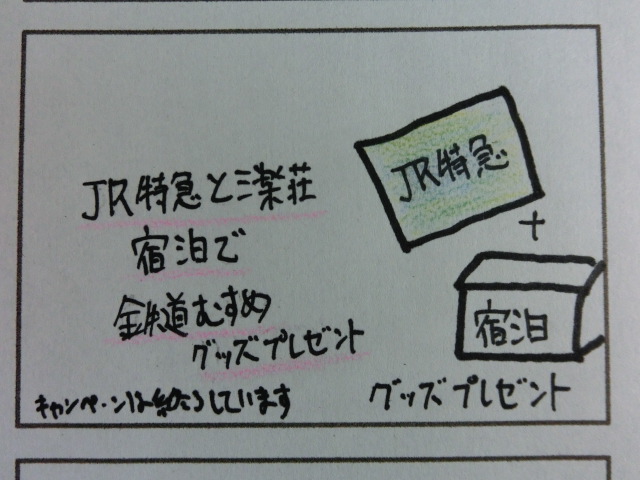 JR特急と三楽荘
宿泊で
鉄道むすめ
グッズプレゼント
キャンペーンは終了しています
JR特急
+
宿泊
グッズプレゼント